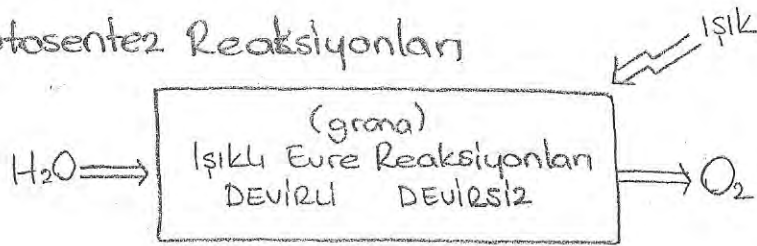 otosentez Reaksiyonları
IşIK
(grana)
H₂O ⇒ Işıklı Evre Reaksiyonları ⇒ O₂
DEVİRLİ DEVİRSİZ